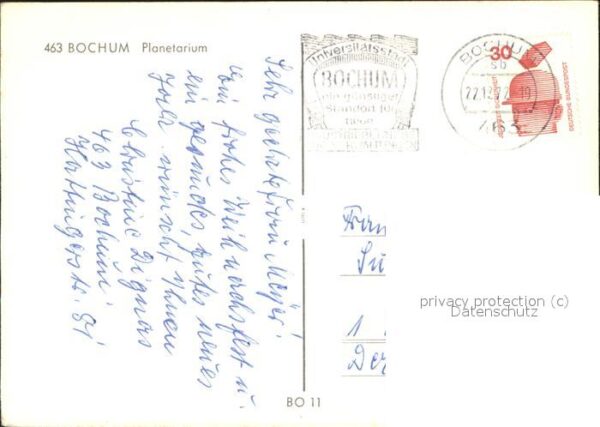 463 BOCHUM Planetarium
Sehr geehrte Frau Meyer!
Ein frohes Weihnachtsfest u.
ein gesundes, gutes neues
Jahr wünscht Ihnen
Christine Dignas
463 Bochum
Hattingerstr. 91
Universitätsstadt
BOCHUM
ein günstiger
Standort für
BOCHUM
22.12.72-19
463
30
DEUTSCHE BUNDESPOST
Frau
1
privacy protection (c)
Datenschutz
BO 11